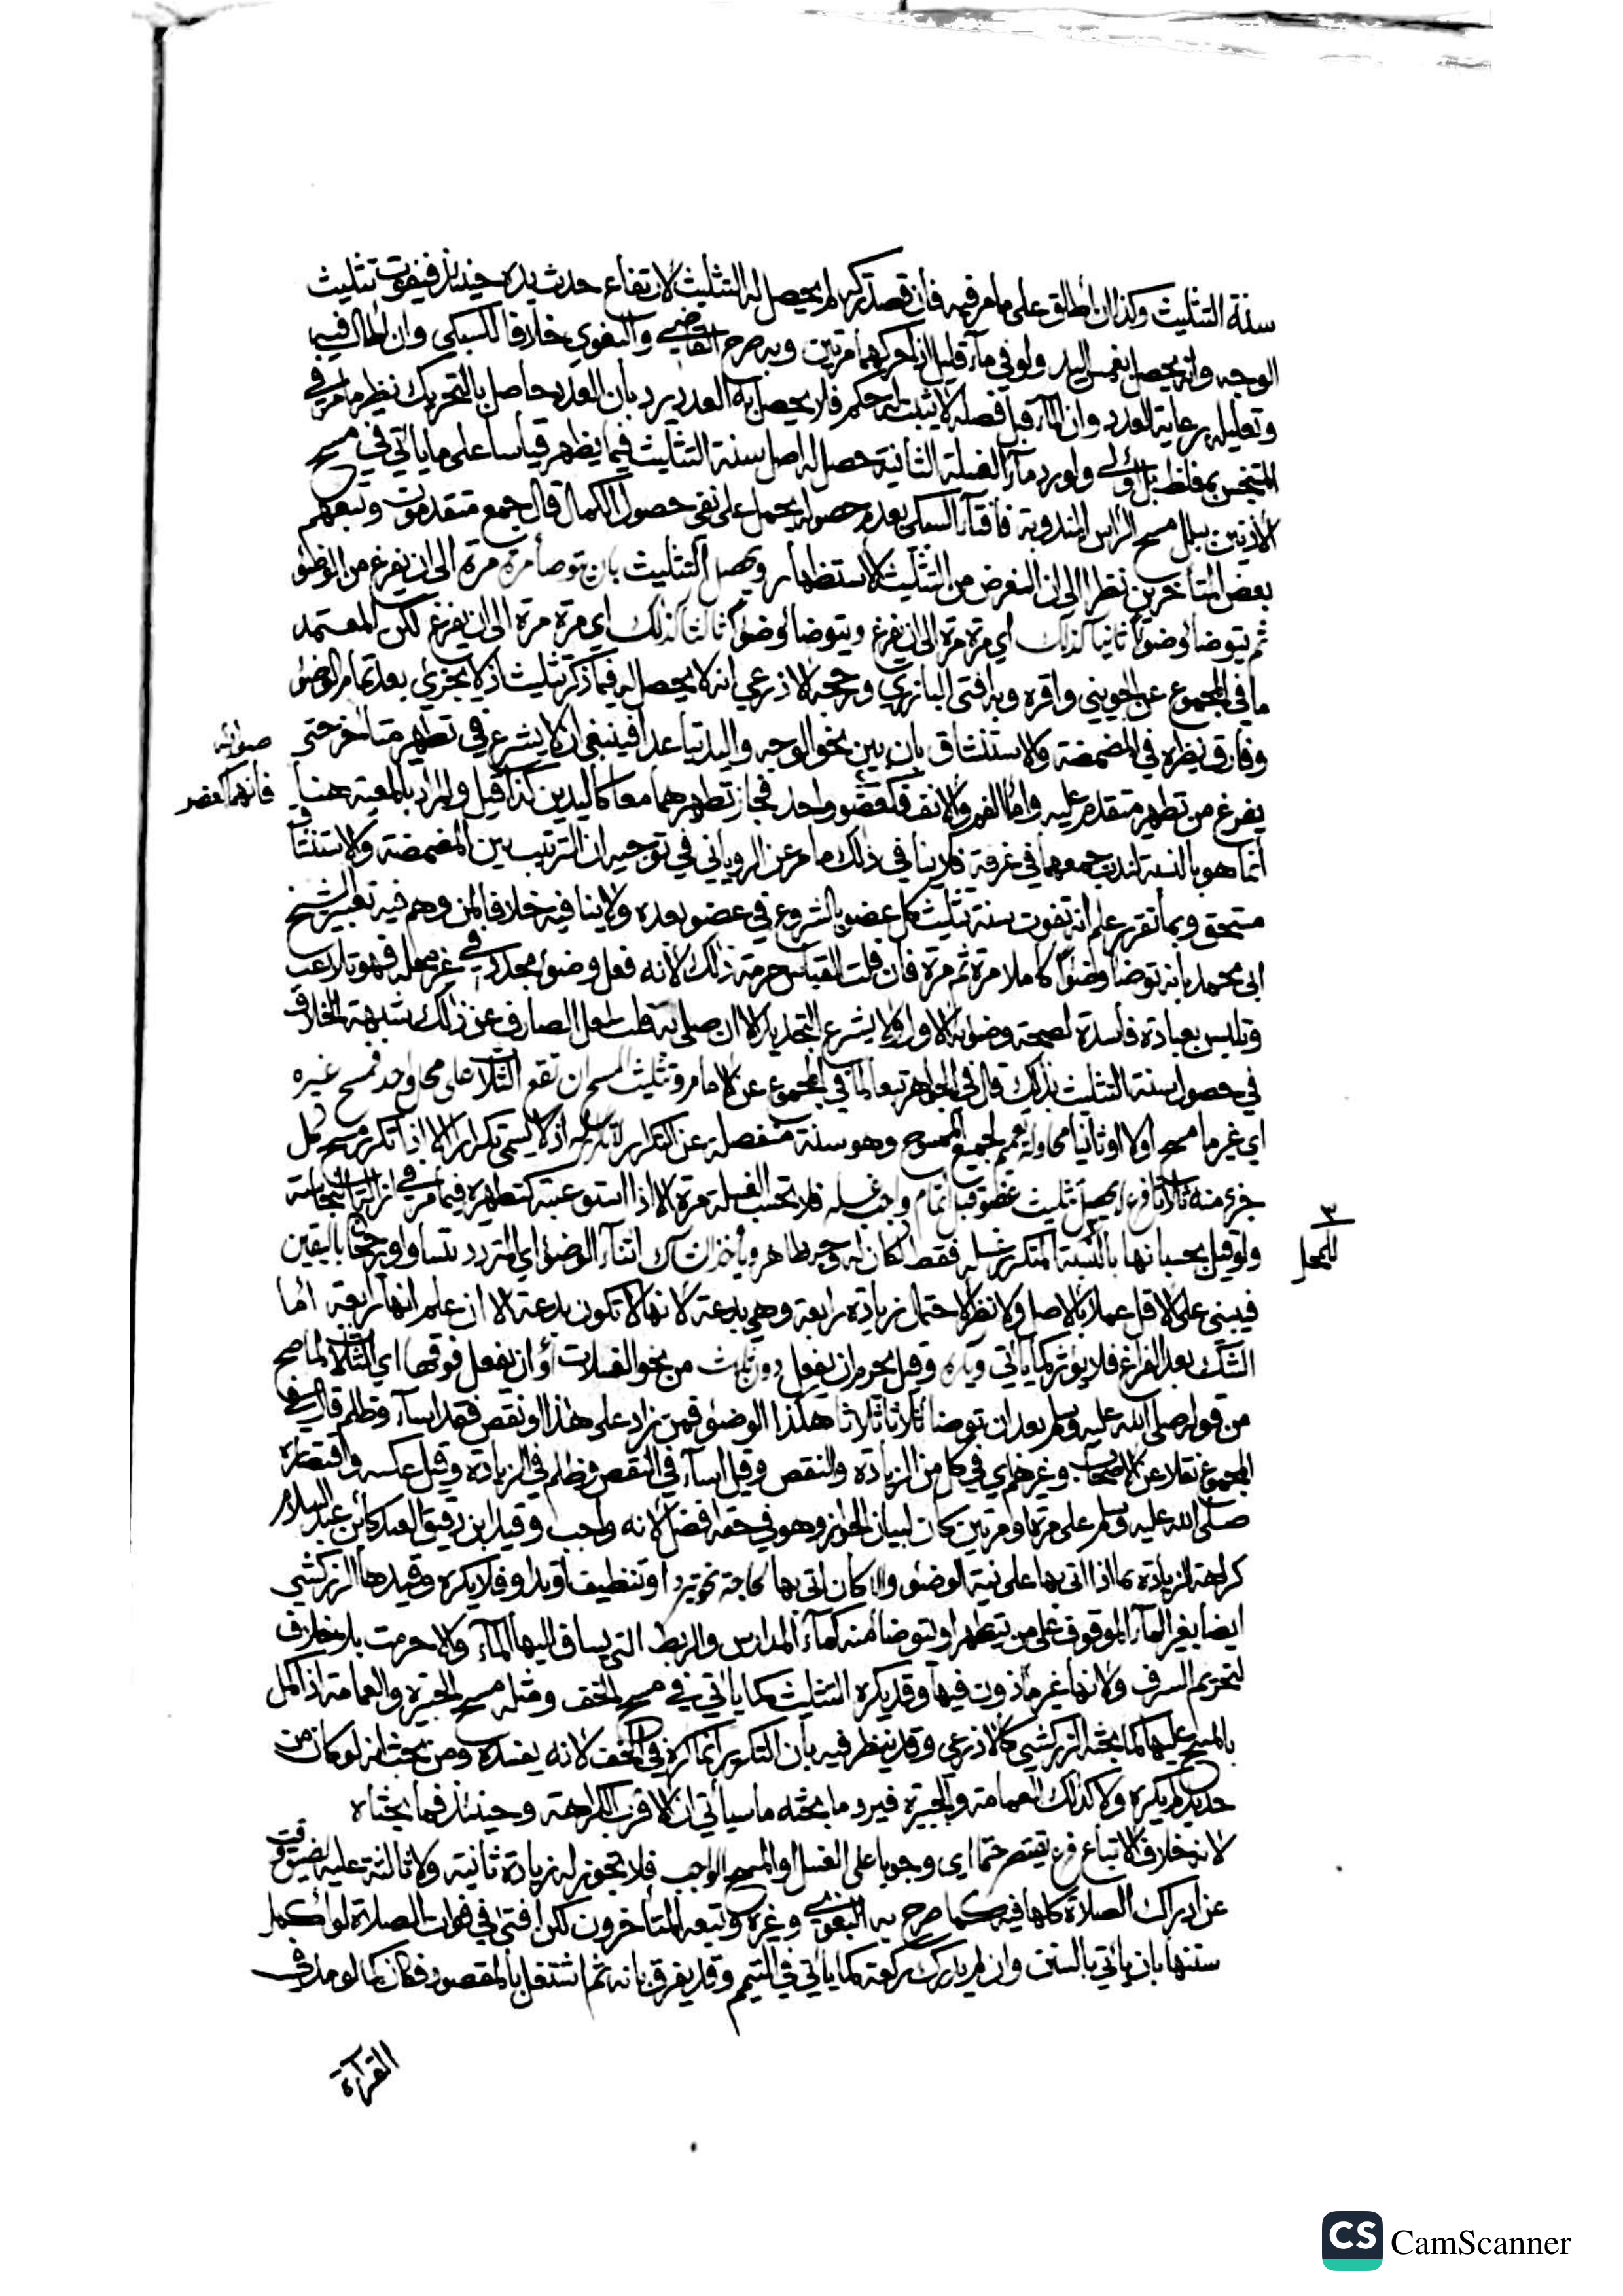 سنة التثليث وكذا ان أطلق على ما مر فيه فان قصد تركه لم يحصل له التثليث لارتفاع حدث يده حينئذ فيفوت تثليث
الوجه وانه يحصل بغمس اليد ولو في مآء قليل اذا حركهما مرتين وبه صرح القاضي والبغوي خلافا للسبكي وان اطال فيه
وتعليله برعاية العدد وان المآء قبل فصله لا يثبت له حكم فلا يحصل به العدد يرد بأن العدد حاصل بالتحريك نظير ما مر في
المتنجس بمغلظ بل أولى ولو رد مآء الغسلة الثانية حصل له اصل سنة التثليث فيما يظهر قياسا على ما يأتي في مسح
الأذنين ببلل مسح الرأس المندوبة فافتآء السبكي بعدم حصوله يحمل على نفي حصول الكمال قال جمع متقدمون وتبعهم
بعض المتأخرين نظرا الى ان الغرض من التثليث الاستظهار ويحصل التثليث بان توضأ مرة مرة الى ان يفرغ من الوضؤ
ثم يتوضأ وضوءا ثانيا كذلك اي مرة مرة الى ان يفرغ ويتوضأ وضوءا ثالثا كذلك اي مرة مرة الى ان يفرغ لكن المعتمد
ما في المجموع عن الجويني واقره وبه افتى البارزي ورجحه الاذرعي انه لا يحصل له فيما ذكر تثليث اذ لا يجزي بعد تمام الوضؤ
وفارق نظيره في المضمضة والاستنشاق بان بين نحو الوجه واليد تباعدا فينبغي ان لا يشرع في تطهير متأخر حتى
يفرغ من تطهير متقدم عليه واما الفم والانف فكعضو واحد فجاز تطهيرهما معا كاليدين كذا قيل والمراد بالمعية هنا
فانهما كعضو
انما هو بالنسبة لندب جمعهما في غرفة فلا ينافي ذلك ما مر عن الروياني في توجيه ان الترتيب بين المضمضة والاستنشاق
مستحق وبما تقرر علم انه تفوت سنة تثليث كل عضو بالشروع في عضو بعده ولا ينافيه خلافا لمن وهم فيه تعبير الشيخ
ابي محمد بأنه توضأ وضوءا كاملا مرة ثم مرة فان قلت القياس حرمة ذلك لانه فعل وضوء مجدد في غير محله فهو تلاعب
وتلبس بعبادة فاسدة لصحة وضوئه الاول ولا يشرع التجديد الا ان صلى به قلت لعل الصارف عن ذلك شبهة الخلاف
في حصول سنة التثليث بذلك قال في الجواهر تبعا لما في المجموع عن الامام وتثليث المسح ان تقع الثلاث على محل واحد فمسح غيره
اي غير ما مسح اولا او ثانيا محاولة تعميم لجميع الممسوح وهو سنة منفصلة عن التكرار اذ لا يسمى تكرارا الا اذا تكرر مسح كل
جزء منه ثلاثا فرع لا يحصل تثليث عضو قبل تمام واجب غسله فلا تحسب الغسلة مرة الا اذا استوعبته كتطهيره فيما مر في ازالة النجاسة
للمحل
ولو قيل بحسبانها بالنسبة لمتكرر غسله فقط لكان له وجه ظاهر ويأخذ ان شك اثناء الوضؤ اي المتردد بتساو او رجحان باليقين
فيبني على الاقل عملا بالاصل ولا نظر لاحتمال زيادة رابعة وهي بدعة لانها لا تكون بدعة الا ان علم انها رابعة أما
الشك بعد الفراغ فلا يؤثر كما يأتي ويكره وقيل يحرم ان يفعل دون ثلاث من نحو الغسلات أو ان يفعل فوقها اي الثلاث لما صح
من قوله صلى الله عليه وسلم بعد ان توضأ ثلاثا ثلاثا هكذا الوضؤ فمن زاد على هذا او نقص فقد اساء وظلم قال في
المجموع نقلا عن الاصحاب وغيرهم اي في كل من الزيادة والنقص وقيل اساء في النقص وظلم في الزيادة وقيل عكسه واقتصاره
صلى الله عليه وسلم على مرة او مرتين كان لبيان الجواز وهو في حقه افضل لانه واجب وقيد ابن دقيق العيد كابن عبد السلام
كراهة الزيادة بما اذا اتى بها على نية الوضؤ والا كان اتى بها لحاجة نحو تبرد او تنظيف او تداو فلا يكره وقيدها الزركشي
ايضا بغير المآء الموقوف على من يتطهر او يتوضأ منه كمآء المدارس والربط التي يساق اليها المآء والا حرمت بلا خلاف
لتحريم السرف ولانها غير مأذون فيها وقد يكره التثليث كما يأتي في مسح الخف ومثله مسح الجبيرة والعمامة اذا كمل
بالمسح عليها كما بحثه الزركشي كالاذرعي وقد ينظر فيه بأن التكرير انما كره في الخف لانه يفسده ومن بحث انه لو كان من
حديد لم يكره ولا كذلك العمامة والجبيرة فيرد ما بحثه ما سيأتي ان الاقرب الكراهة وحينئذ فما بحثاه
لانه خلاف الاتباع فرع يقتصر حتما اي وجوبا على الغسل او المسح الواجب فلا تجوز له زيادة ثانية ولا ثالثة عليه لضيق وقت
عن ادراك الصلاة كلها فيه كما صرح به البغوي وغيره وتبعه المتأخرون لكن افتى في فوات الصلاة لو أكمل
سننها بان يأتي بالسنن وان لم يدرك ركعة كما يأتي في التيمم وقد يفرق بانه ثم اشتغل بالمقصود فكان كما لو مد في
القرآءة
CS CamScanner